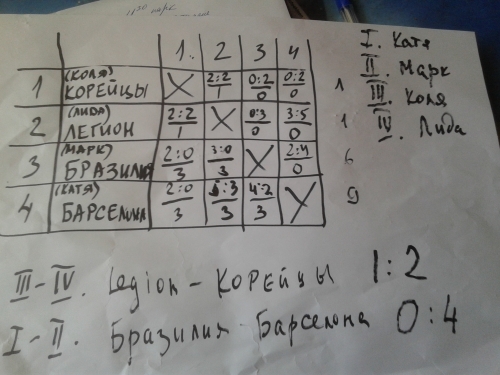 1 2 3 4
1 (КОЛЯ) КОРЕЙЦЫ X 2:2 1 0:2 0 0:2 0 1
2 (ЛИДА) ЛЕГИОН 2:2 1 X 0:3 0 3:5 0 1
3 (МАРК) БРАЗИЛИЯ 2:0 3 3:0 3 X 2:4 0 6
4 (КАТЯ) БАРСЕЛОНА 2:0 3 5:3 3 4:2 3 X 9
I. Катя
II. Марк
III. Коля
IV. Лида
III-IV. Legion - КОРЕЙЦЫ 1:2
I-II. Бразилия-Барселона 0:4